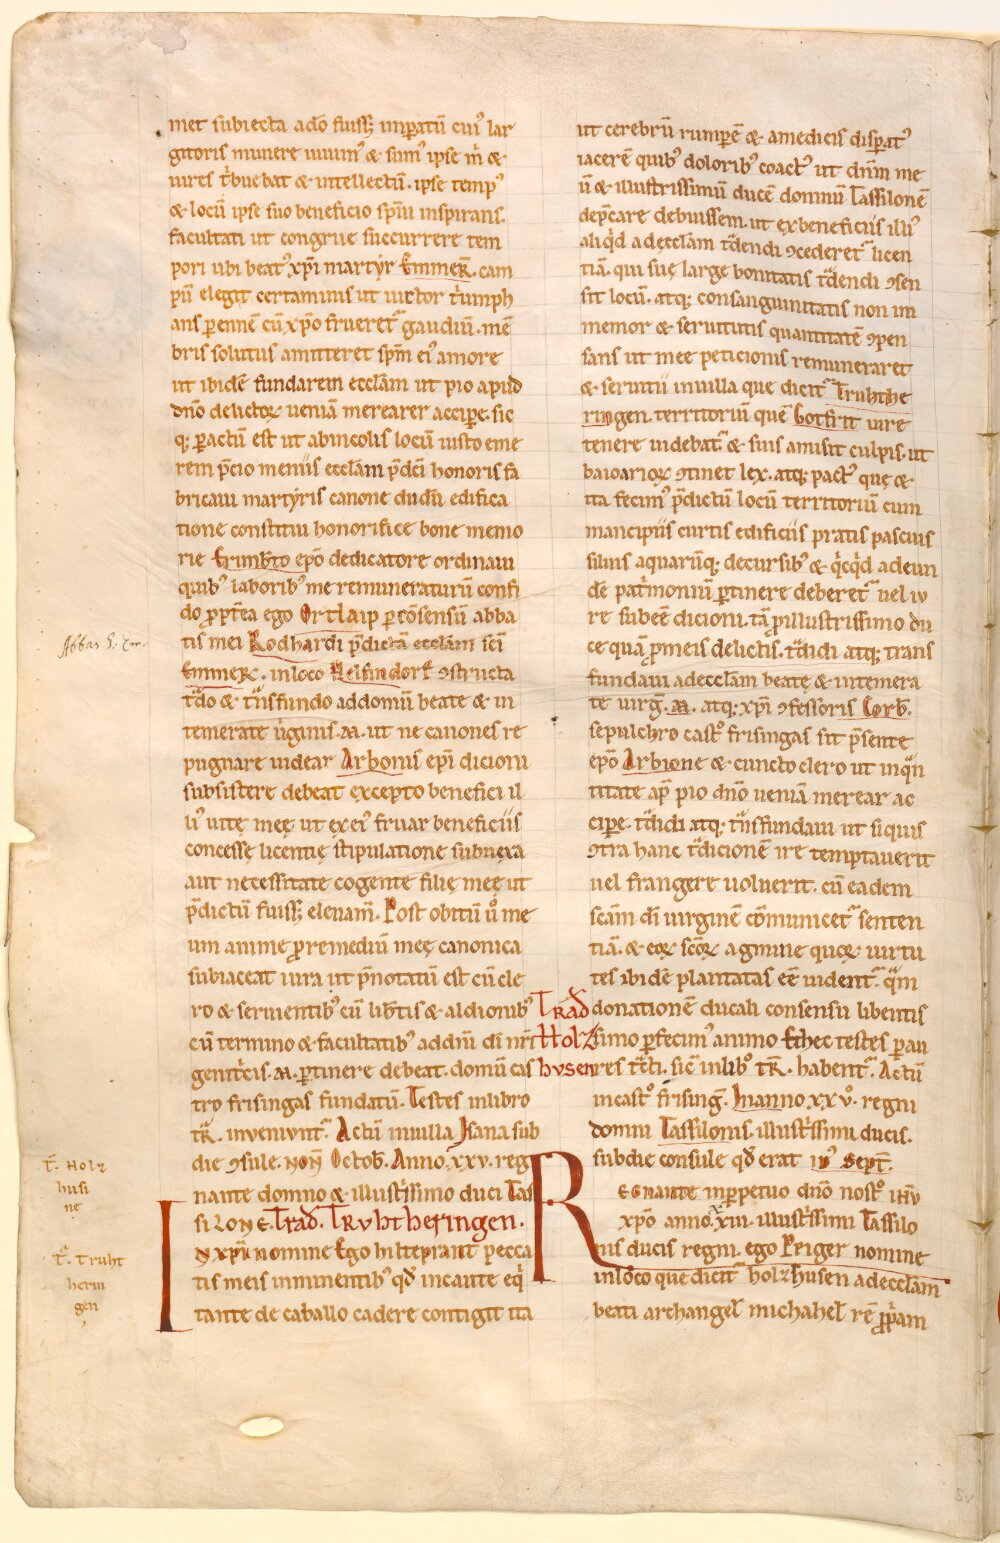 met subiecta adõ fuiss; imp̃atũ cui᷒ lar
gitoris munere uiuim᷒ & sum᷒ ipse m̃ &
uires t̃buebat & intellectũ. ipse temp᷒
& locũ ipse suo beneficio sp̃m inspirans.
facultati ut congrue succurrere tem
pori ubi beat᷒ xp̃i martẏr Emmer̃. cam
pũ elegit certaminis ut uictor t̃umph
ans p̱ennẽ cũ xp̃o frueret᷑ gaudiũ. mẽ
bris solutus amitteret sp̃m ei᷒ amore
ut ibidẽ fundarem ecclãm ut pio apud
dñoꝫ delictoꝝ ueniã merearer accipe̱. sic
q; p̱actũ est ut abincolis locũ iusto eme
rem p̃cio meniis ecclãm p̃dc̃i honoris fa
bricaui martẏris canone dudũ edifica
tione constitui honorifice bone memo
rie Erimb̃to ep̃o dedicatore ordinaui
quib᷒ laborib᷒ me remuneraturũ confi
do ꝓpt̃ea ego Ortlaip p̱cõsensũ abba
tis mei Rodhardi p̃dictã ecclãm sc̃i
Emmer̃. inloco Pelfindorf ꝯstructa
t᷑do & t᷑nsfundo addomũ beate & in
temerate u᷑ginis. M. ut ne canones re
pugnare uidear Arbonis ep̃i dicioni
subsistere debeat excepto benefici il
li᷒ uitę meę ut ex ei᷒ fruar beneficiis
concessę licentię stipulatione subnexa
aut necessitate cogente filię meę ut
p̃dictũ fuiss; eleuam̃. Post obitũ ů me
um anime ꝓremediũ meę canonica
subiaceat iura ut p̃notatũ est cũ cle
ro & seruientib᷒ cũ lib̃tis & aldionib᷒
cũ termino & facultatib᷒ addñi dĩ nr̃i
genit̃cis. M. p̱tinere debeat. domũ cas
tro frisingas fundatũ. Testes inlibro
tr̃. inveniunt᷑. Actũ inuilla Isana sub
die ꝯsule. noñ Octob̃. Anno. xxv. reg
nante domno & illust̃ssimo duci Tas
siLONE. Trad̃. Truhtheringen.
IN xp̃i nomine Ego hilteprant pecca
tis meis inminentib᷒ qđ incaute eq̃
tante de caballo cadere contigit ita
ut cerebrũ rumpe̱ & amedicis disp̱at᷒
iacerẽ quib᷒ dolorib᷒ coact᷒ ut dñm me
ũ & illustrissimũ ducẽ domnũ Tassilonẽ
dep̃care debuissem. ut exbeneficiis illi᷒
aliq̃d adecclãm t᷑dendi ꝯcederet᷑ licen
tiã. qui suę large bonitatis t᷑dendi ꝯsen
sit locũ. atq; consanguinitatis non im
memor & seruitutis quantitatẽ ꝯpen
sans ut mee peticionis remuneraret
& seruitii inuilla que dicit᷑ Truhthe
ringen. territoriũ quẽ Cotfrit uire
tenere uidebat᷑. & suis amisit culpis. ut
baioarioꝝ ꝯtinet lex. atq; pact᷒ quę &
ita fecim᷒ p̃dictũ locũ territoriũ cum
mancipiis curtis edificiis pratis pascuis
siluis aquarũq; decursib᷒ & q̃cq̃d adeun
dẽ pat̃moniũ p̱tinere deberet᷑ uel iu
re subeẽ dicioni. tã p̱illustrissimo du
ce quã ꝓmeis delictis. t᷑didi atq; trans
fundaui adecclãm beate & intemera
te uirg̃. M. atq; xp̃i ꝯfessoris Corb̃.
sepulchro cast᷒ frisingas sit p̃sente
ep̃o Arbione & cuncto clero ut inq̃n
titate ap̃ pio dño ueniã merear ac
cipe̱. t᷑didi atq; t᷑nsfundaui ut siquis
ꝯtra hanc t᷑dicionẽ ire temptauerit
uel frangere uoluerit. cũ eadem
scãm dĩ uirginẽ cõmunicet᷑ senten
tiã. & eoꝝ sc̃oꝝ agmine quoꝝ uirtu
tes ibidẽ plantatas eẽ uident᷑. q̃m
Trad̃ donationẽ ducali consensu libentis
Holz simo p̱fecim᷒ animo Ethec testes p̱au
husen res tt̃ti. sic̃ inlib᷒ tr̃. habent᷑. Actũ
incast᷒ frising̃. Inanno xxv̊. regni
domni Tassilonis. illust̃ssimi ducis.
subdie consule qđ erat iđ sept̃.
REGnante inp̱petuo dño nost᷒ ihũ
xp̃o anno. xiii. illust̃ssimi Tassilo
nis ducis regni. ego Priger nomine
inloco que dicit᷑ holzhusen adecclãm
beati archangeł michaheł rẽ ꝓp̱am
Abbas S.
t᷑. Holz
husi
ne
t᷑. Truht
herin
gen
5v